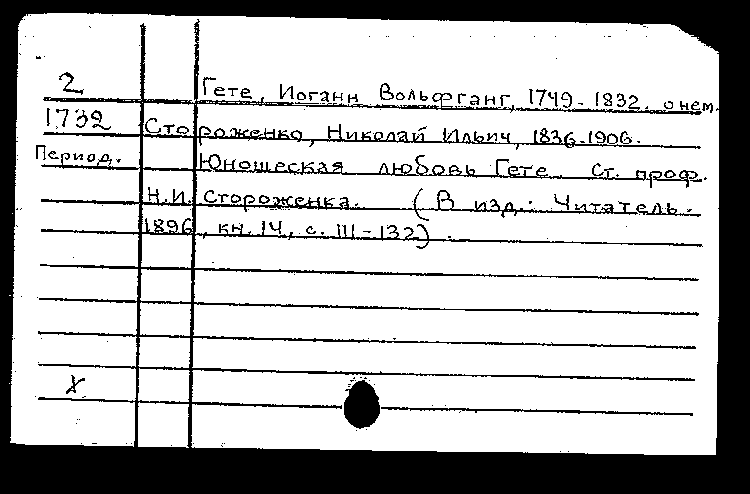 2 Гете, Иоганн Вольфганг, 1749-1832. о нем.
1732 Стороженко, Николай Ильич, 1836-1906.
Период. Юношеская любовь Гете. Ст. проф.
Н.И. Стороженка. (В изд.: Читатель.
1896, кн. 14, с. 111-132).
X